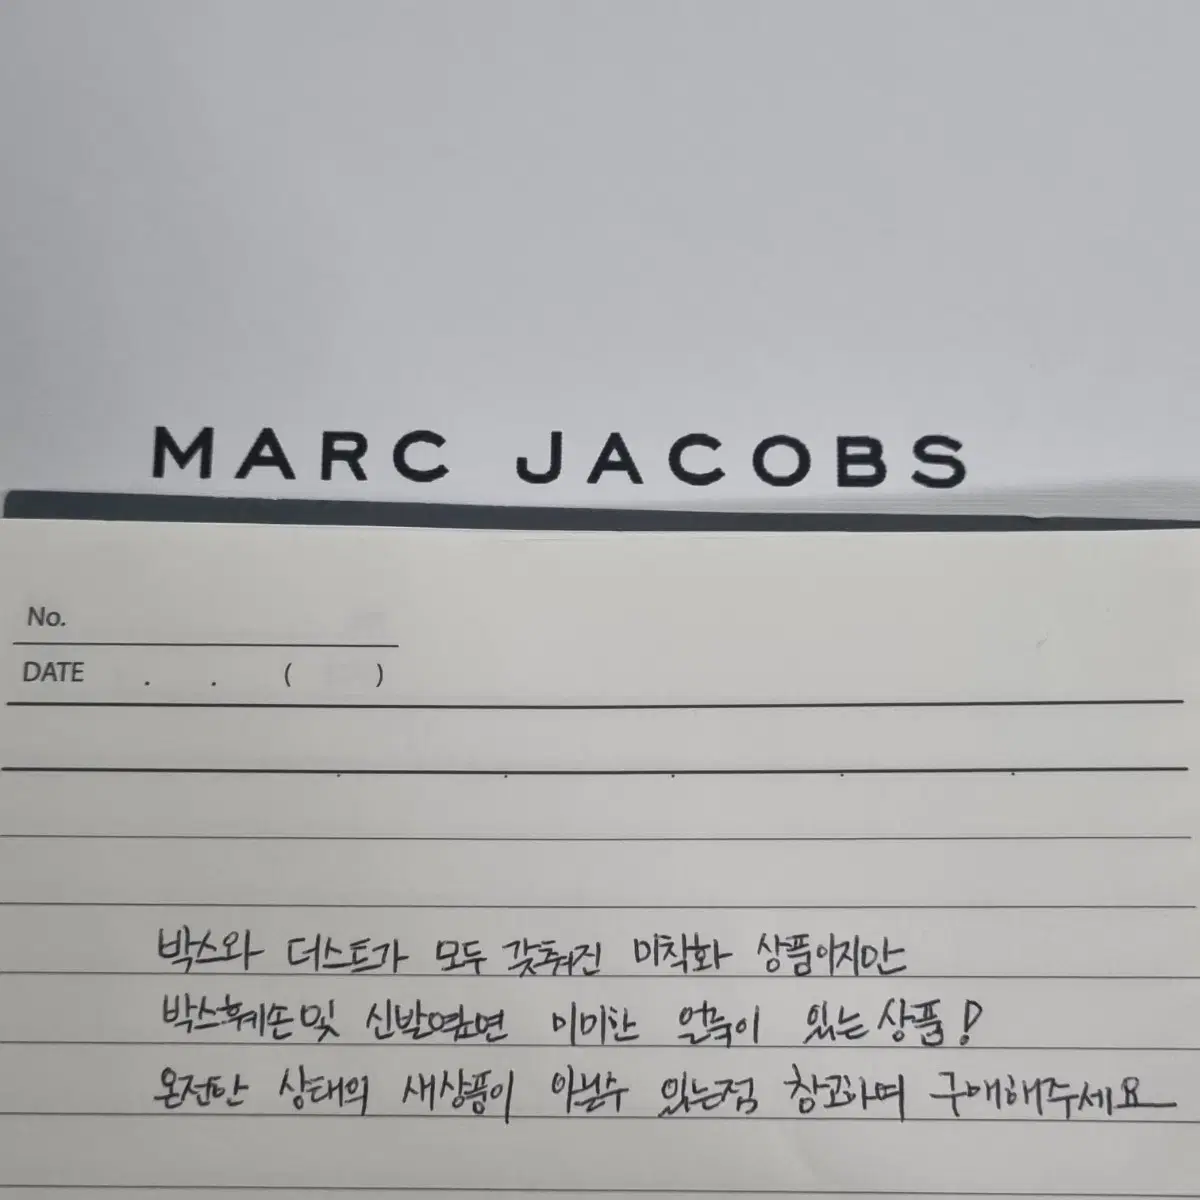 MARC JACOBS
No.
DATE . . ( )
박스와 더스트가 모두 갖춰진 미착화 상품이지만
박스훼손 및 신발옆면 미미한 얼룩이 있는 상품!
온전한 상태의 새상품이 아닐수 있는점 참고하여 구매해주세요